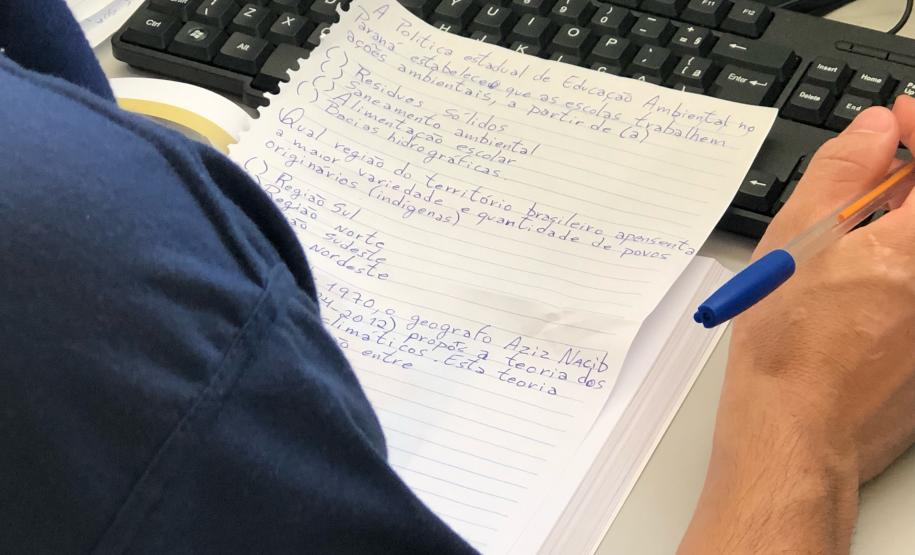 A Política estadual de Educação Ambiental no
Paraná estabeleceu que as escolas trabalhem
ações ambientais, a partir de (a)
( ) Resíduos Sólidos
( ) Saneamento ambiental
( ) Alimentação escolar
( ) Bacias hidrográficas.
Qual região do território brasileiro apensenta
a maior variedade e quantidade de povos
originários (indígenas)
( ) Região Sul
Região Norte
Sudeste
Nordeste
1970, o geografo Aziz Nacib
2012) propõe a teoria dos
climáticos. Esta teoria
entre
Ctrl
Alt
Z
X
Y
U
I
O
P
K
L
F11
F12
Enter
Insert
Home
Delete
End